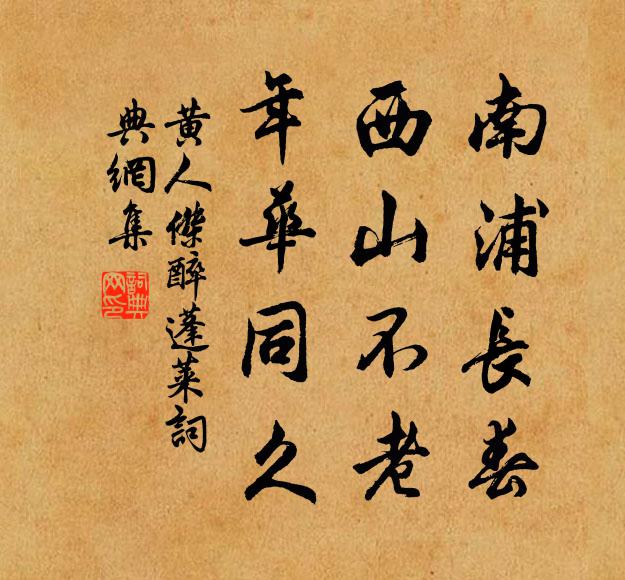 南浦長春
西山不老
年華同久
黄人傑醉蓬萊詞
典網集
詞典
网印